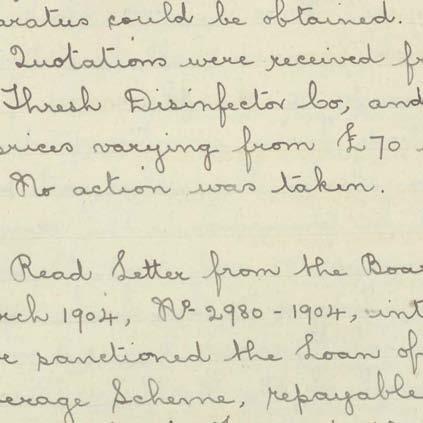 aratus could be obtained.
Quotations were received fr
Thresh Disinfector Co, and
prices varying from £70
No action was taken.
Read Letter from the Boa
rch 1904, No 2980-1904, int
sanctioned the Loan of
erage Scheme, repayable